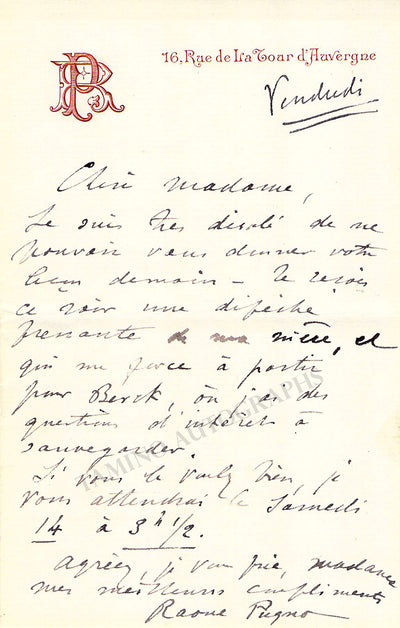 RP
16, Rue de La Tour d'Auvergne
Vendredi
Chère madame,
Je suis très désolé de ne
pouvoir vous donner votre
leçon demain – Je reçois
ce soir une dépêche
pressante de ma mère, et
qui me force à partir
pour Berck, où j'ai des
questions d'intérêt à
sauvegarder.
Si vous le voulez bien, je
vous attendrai le Samedi
14 à 3h 1/2.
Agréez, je vous prie, madame
mes meilleurs compliments
Raoul Pugno
TAMINO AUTOGRAPHS